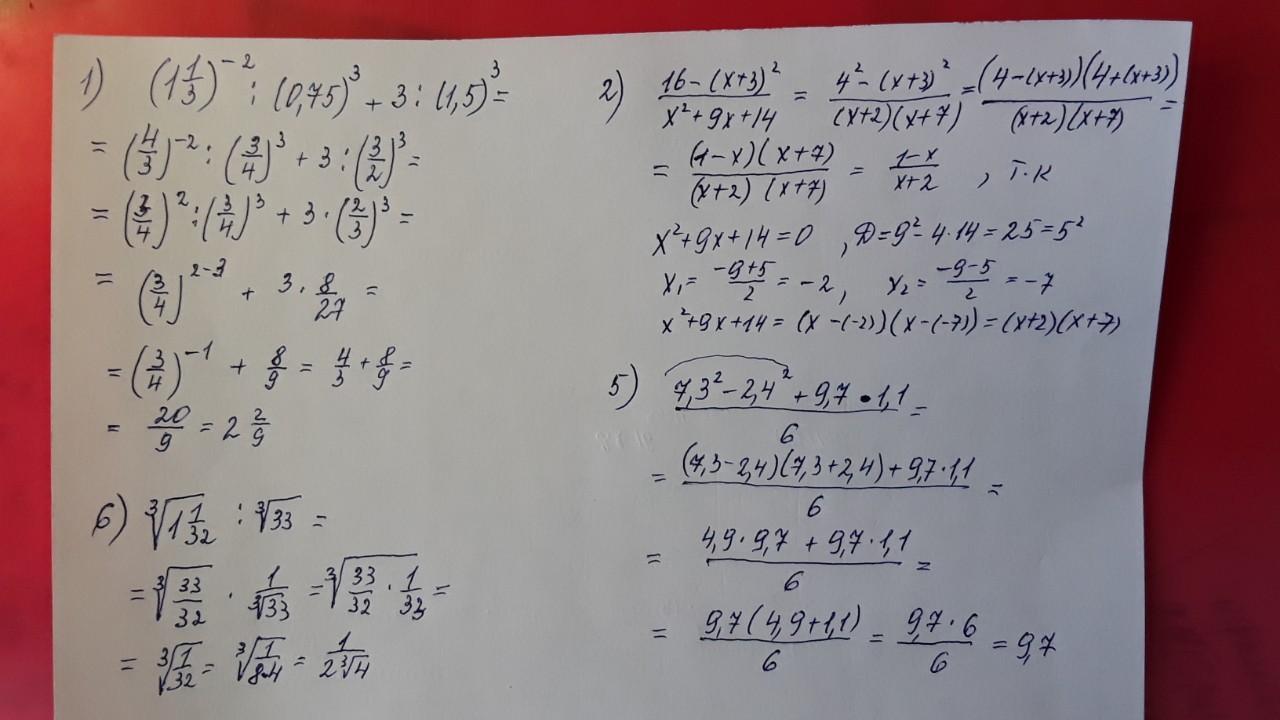 1) (1 1/3)^-2 : (0,75)^3 + 3 : (1,5)^3 =
= (4/3)^-2 : (3/4)^3 + 3 : (3/2)^3 =
= (3/4)^2 : (3/4)^3 + 3 · (2/3)^3 =
= (3/4)^2-3 + 3 · 8/27 =
= (3/4)^-1 + 8/9 = 4/3 + 8/9 =
= 20/9 = 2 2/9
6) ∛(1 1/32) : ∛33 =
= ∛(33/32) · 1/∛33 = ∛(33/32 · 1/33) =
= ∛(1/32) = ∛(1/8·4) = 1/2∛4
2) 16-(x+3)^2/x^2+9x+14 = 4^2-(x+3)^2/(x+2)(x+7) = (4-(x+3))(4+(x+3))/(x+2)(x+7) =
= (1-x)(x+7)/(x+2)(x+7) = 1-x/x+2 , т.к
x^2+9x+14=0 , D=9^2-4·14=25=5^2
x₁= -9+5/2 = -2 , x₂= -9-5/2 = -7
x^2+9x+14 = (x-(-2))(x-(-7)) = (x+2)(x+7)
5) 7,3^2-2,4^2+9,7·1,1/6 =
= (7,3-2,4)(7,3+2,4)+9,7·1,1/6 =
= 4,9·9,7 + 9,7·1,1/6 =
= 9,7(4,9+1,1)/6 = 9,7·6/6 = 9,7